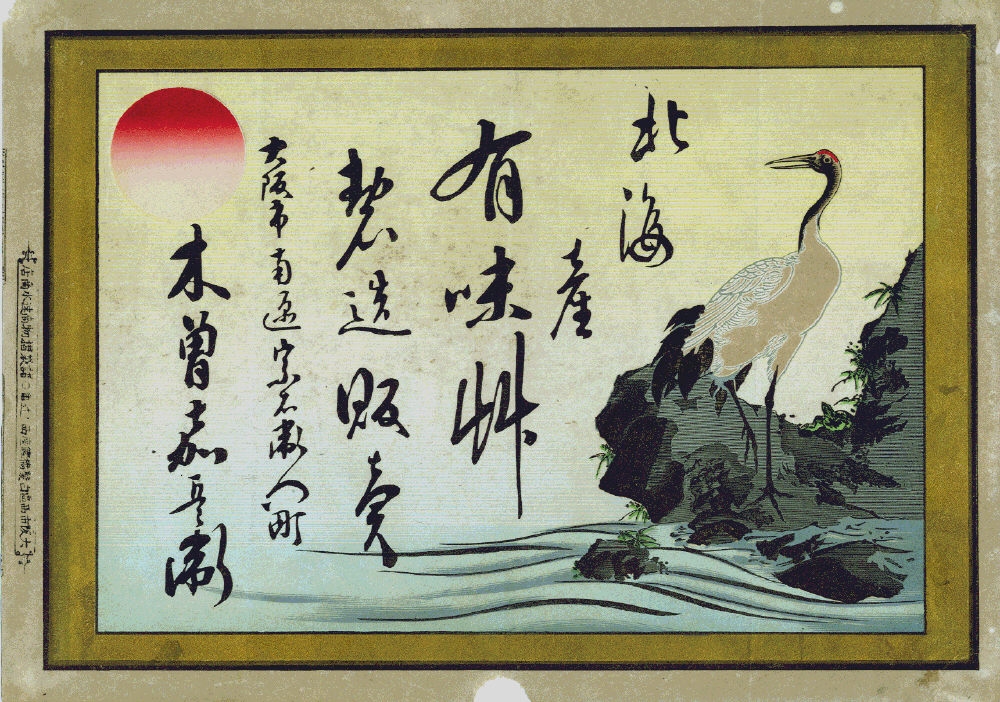 北海
産
有味艸
製造販売
大阪市南区宗右衛門町
木曽嘉兵衛